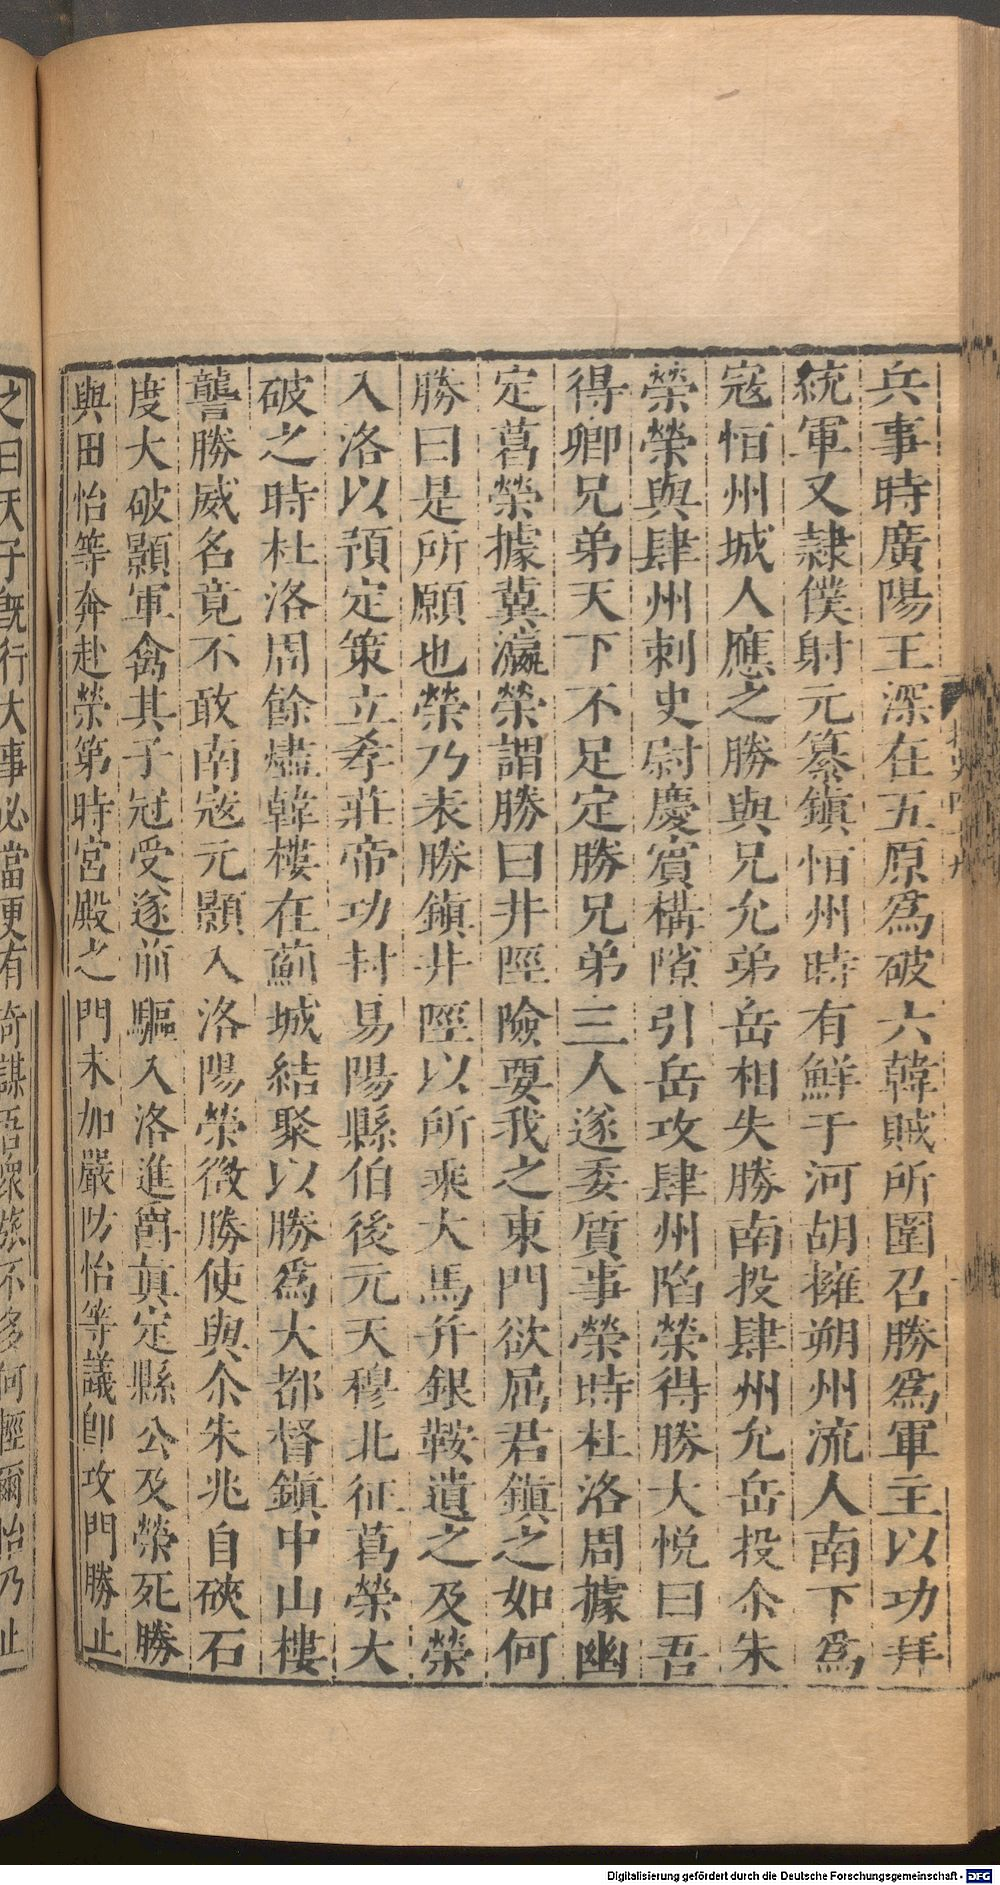 兵事時廣陽王深在五原爲破六韓賊所圍召勝爲軍主以功拜
統軍又隷僕射元纂鎮恒州時有鮮于河胡擁朔州流人南下爲
寇恒州城人應之勝與兄允弟岳相失勝南投肆州允岳投尒朱
榮榮與肆州刺史尉慶賓構隙引岳攻肆州陷榮得勝大悦曰吾
得卿兄弟天下不足定勝兄弟三人遂委質事榮時杜洛周據幽
定葛榮據冀瀛榮謂勝曰井陘險要我之東門欲屈君鎮之如何
勝曰是所願也榮乃表勝鎮井陘以所乘大馬并銀鞍遺之及榮
入洛以預定策立孝莊帝功封易陽縣伯後元天穆北征葛榮大
破之時杜洛周餘燼韓樓在薊城結聚以勝爲大都督鎮中山樓
讋勝威名竟不敢南寇元顥入洛陽榮徴勝使與尒朱兆自硤石
度大破顥軍禽其子冠受遂前驅入洛進爵真定縣公及榮死勝
與田怡等奔赴榮第時宮殿之門未加嚴防怡等議即攻門勝止
之曰天子既行大事必當更有奇謀吾衆旅不多何輕爾怡乃止
Digitalisierung gefördert durch die Deutsche Forschungsgemeinschaft - DFG